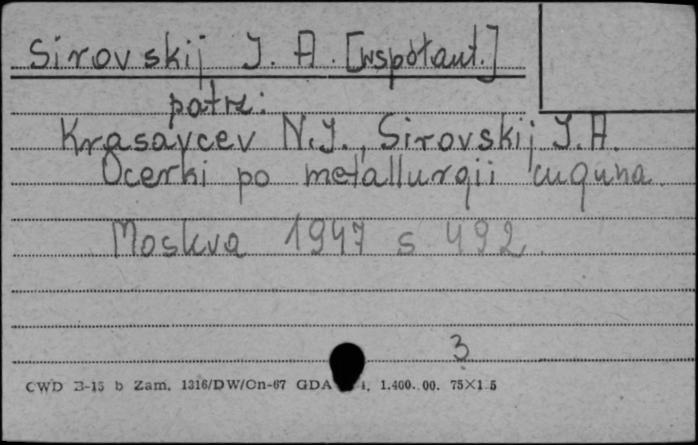 Sirovskij J. A. [współaut.]
patrz:
Krasavcev N.J., Sirovskij J.A.
Ocerki po metallurgii cuguna
Moskva 1947 s 492.
3
CWD B-15 b Zam. 1316/DW/On-67 GDA 1.400. 00. 75×1 5